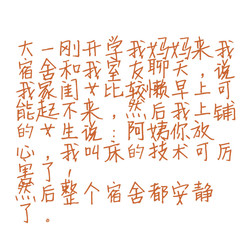 大一刚开学我妈妈来我
宿舍和我室友聊天，说
我家闺女比较懒早上可
能起不来，然后我上铺
的女生说：阿姨你放
心，我叫床的技术可厉
害了，
然后整个宿舍都安静
了。